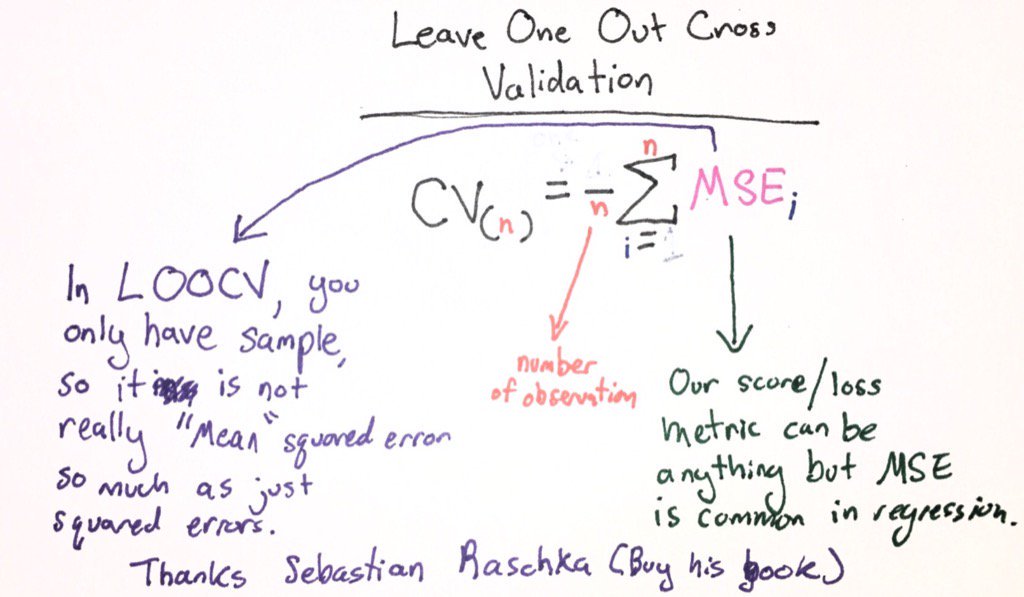 Leave One Out Cross
Validation
CV(n) = 1/n ∑ n i=1 MSEi
In LOOCV, you
only have sample,
so it is not
really "Mean" squared error
so much as just
squared errors.
number
of observation
Our score/loss
metric can be
anything but MSE
is common in regression.
Thanks Sebastian Raschka (Buy his book)